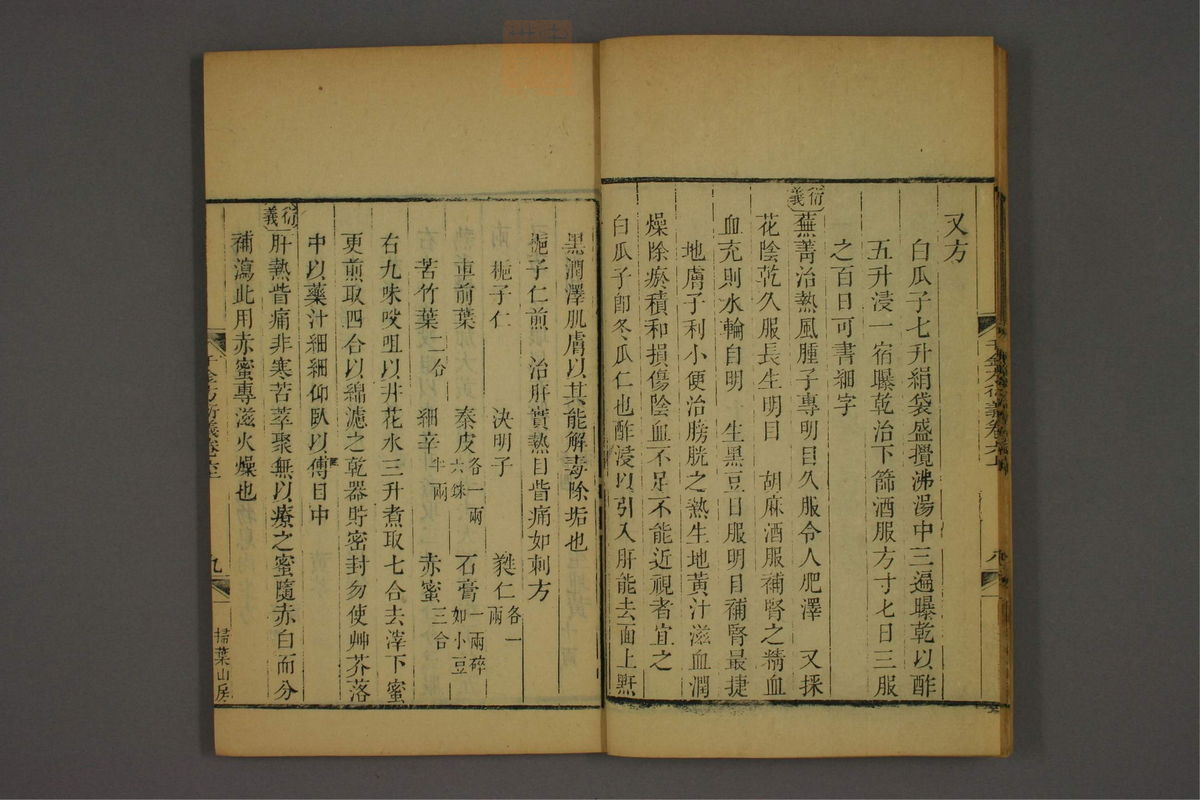 又方
白瓜子七升絹袋盛攪沸湯中三遍曝乾以酢
五升浸一宿曝乾治下篩酒服方寸匕日三服
之百日可書細字
衍義
蕪菁治熱風腫子專明目久服令人肥澤　又採
花陰乾久服長生明目　胡麻酒服補腎之精血
血充則水輪自明　生黑豆日服明目補腎最捷
地膚子利小便治膀胱之熱生地黃汁滋血潤
燥除瘀積和損傷陰血不足不能近視者宜之
白瓜子卽冬瓜仁也酢浸以引入肝能去面上䵟
千金方衍義卷六上
八
黑潤澤肌膚以其能解毒除垢也
梔子仁煎　治肝實熱目眥痛如刺方
梔子仁　決明子　蕤仁各一兩
車前葉　秦皮各一兩六銖　石膏一兩碎如小豆
苦竹葉二合　細辛半兩　赤蜜三合
右九味㕮咀以井花水三升煮取七合去滓下蜜
更煎取四合以綿濾之乾器貯密封勿使艸芥落
中以藥汁細細仰臥以傅目中
衍義
肝熱眥痛非寒苦萃聚無以療之蜜隨赤白而分
補瀉此用赤蜜專滋火燥也
九
掃葉山房